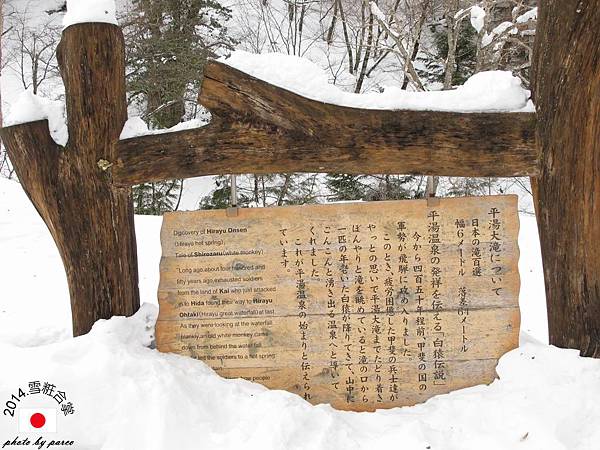 平湯大滝について
日本の滝百選
幅6メートル 落差64メートル
平湯温泉の発祥を伝える「白猿伝説」
今から四百五十年程前、甲斐の国の
軍勢が飛騨に攻め入りました。
このとき、疲労困憊した甲斐の兵士達が
やっとの思いで平湯大滝までたどり着き
ぼんやりと滝を眺めていると滝の口から
一匹の年老いた白猿が降りてきて、山中に
こんこんと湧き出る温泉へと導いて
くれました。
これが平湯温泉の始まりと伝えられ
ています。
Discovery of Hirayu Onsen
(Hirayu hot spring)
Tale of Shirozaru(white monkey)
"Long ago,about four hundred and
fifty years ago,exhausted soldiers
from the land of Kai who just attacked
in to Hida found their way to Hirayu
Ohtaki(Hirayu great waterfall) at last.
As they were looking at the waterfall
blankly,an old white monkey came
down from behind the waterfall
led the soldiers to a hot spring
some people
2014.雪粧合掌
photo by parco